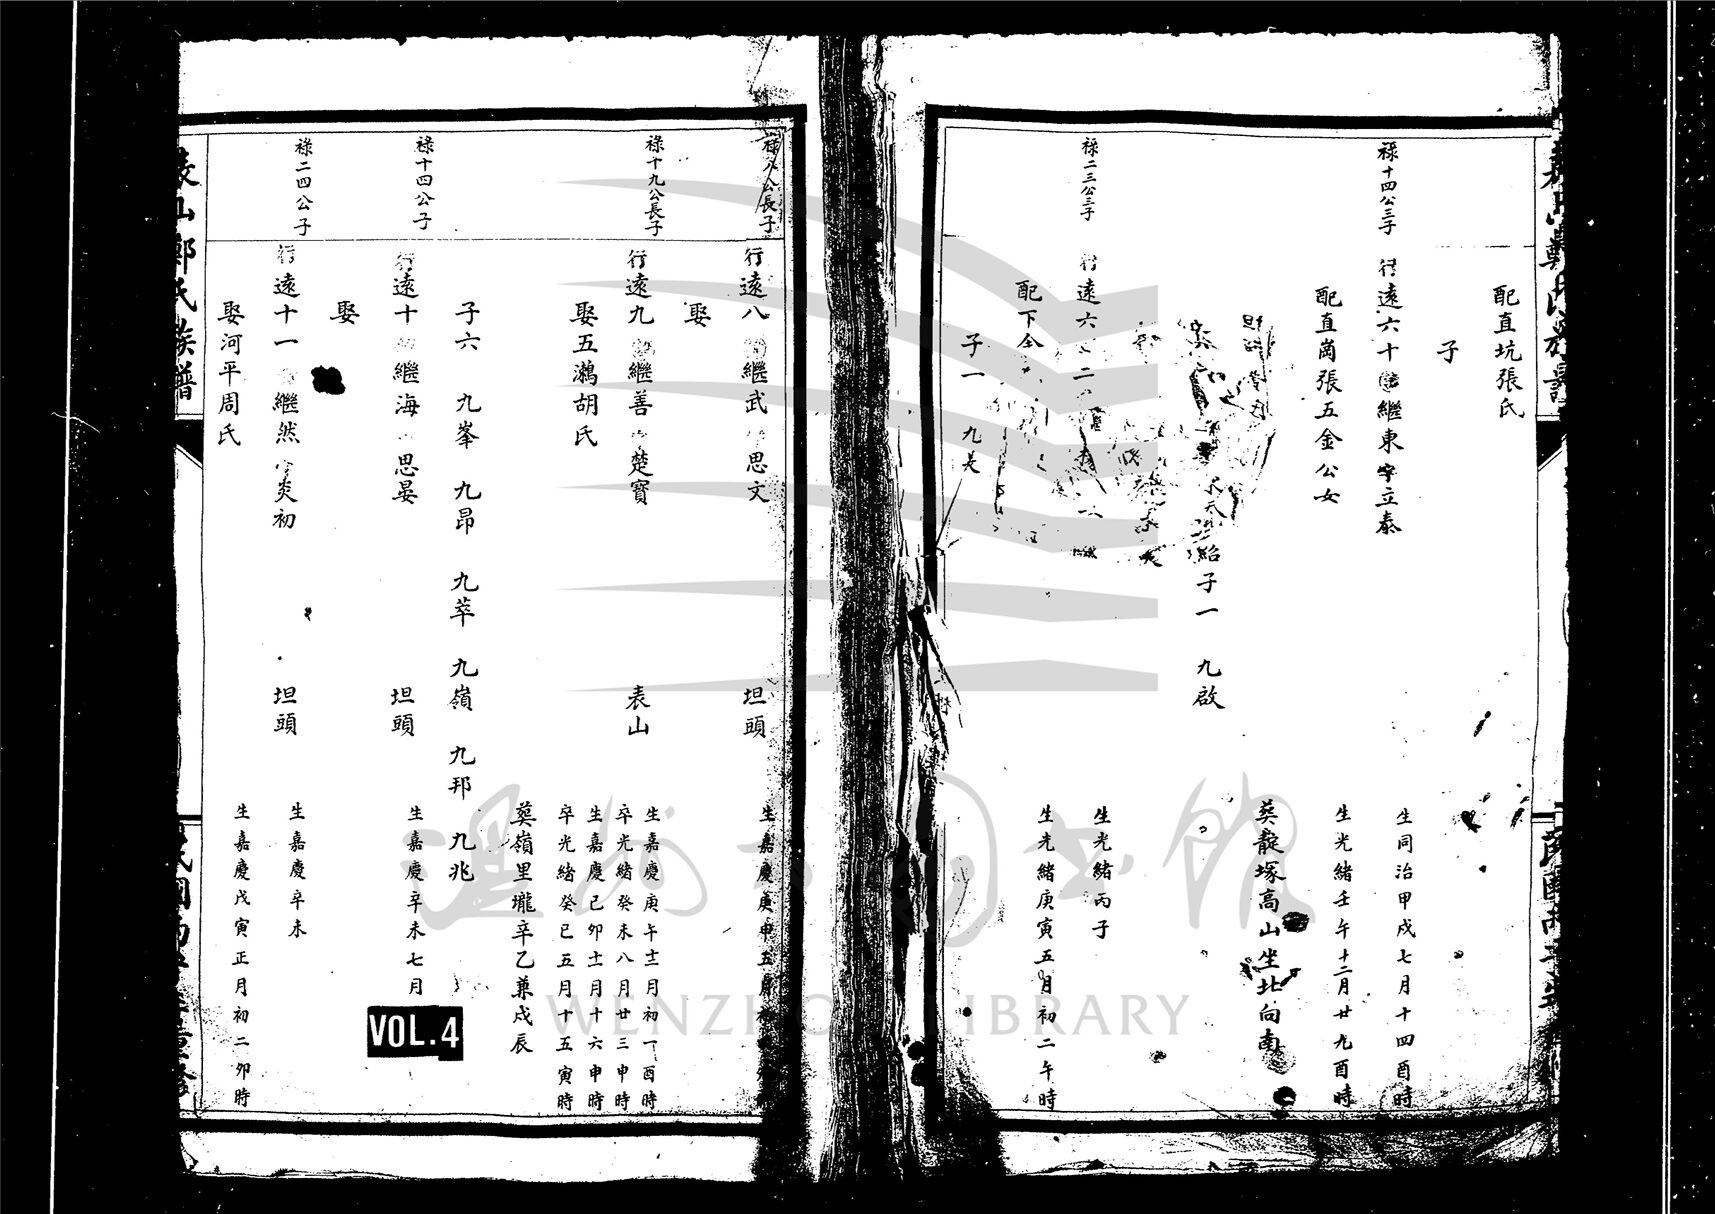 配直坑張氏
子
祿十四公三子
行遠六十 繼東字立泰
生同治甲戌七月十四酉時
配直崗張五金公女
生光緒壬午十二月廿九酉時
葬龍塚高山坐北向南
紹子一 九啟
祿二三公三子
行遠六 二
生光緒丙子
配下余
生光緒庚寅五月初二午時
子一 九美
公長子
行遠八 繼武 思文
坦頭
生嘉慶庚申五
娶
祿十九公長子
行遠九 繼善 楚寶
表山
生嘉慶庚午十二月初一酉時
卒光緒癸未八月廿三申時
娶五鸂胡氏
生嘉慶己卯十一月十六申時
卒光緒癸巳五月十五寅時
葬嶺里壠辛乙兼戌辰
子六 九峯 九昂 九萃 九嶺 九邦 九兆
祿十四公子
行遠十 繼海 思晏
坦頭
生嘉慶辛未七月
娶
祿二四公子
行遠十一 繼然 字炎初
坦頭
生嘉慶辛未
娶河平周氏
生嘉慶戊寅正月初二卯時
表山鄭氏族譜
VOL.4
溫州市圖書館
WENZHOU LIBRARY